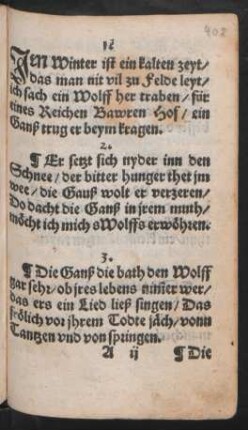 402
IEN Winter ist ein kalten zeyt/
das man nit vil zu Felde leyt/
ich sach ein Wolff her traben/ für
eines Reichen Bawren Hof/ ein
Ganß trug er beym kragen.
2.
¶ Er setzt sich nyder inn den
Schnee/ der bitter hunger thet jm
wee/ die Gauß wolt er verzeren/
Do dacht die Ganß in jrem muth/
möcht ich mich sWolffs erwöhren.
3.
¶ Die Ganß die bath den Wolff
gar sehr/ ob jres lebens nim̄er wer/
das ers ein Lied ließ singen/ Das
frölich vor jhrem Todte jäch/ vonn
Tantzen vnd von springen.
A ij ¶ Die